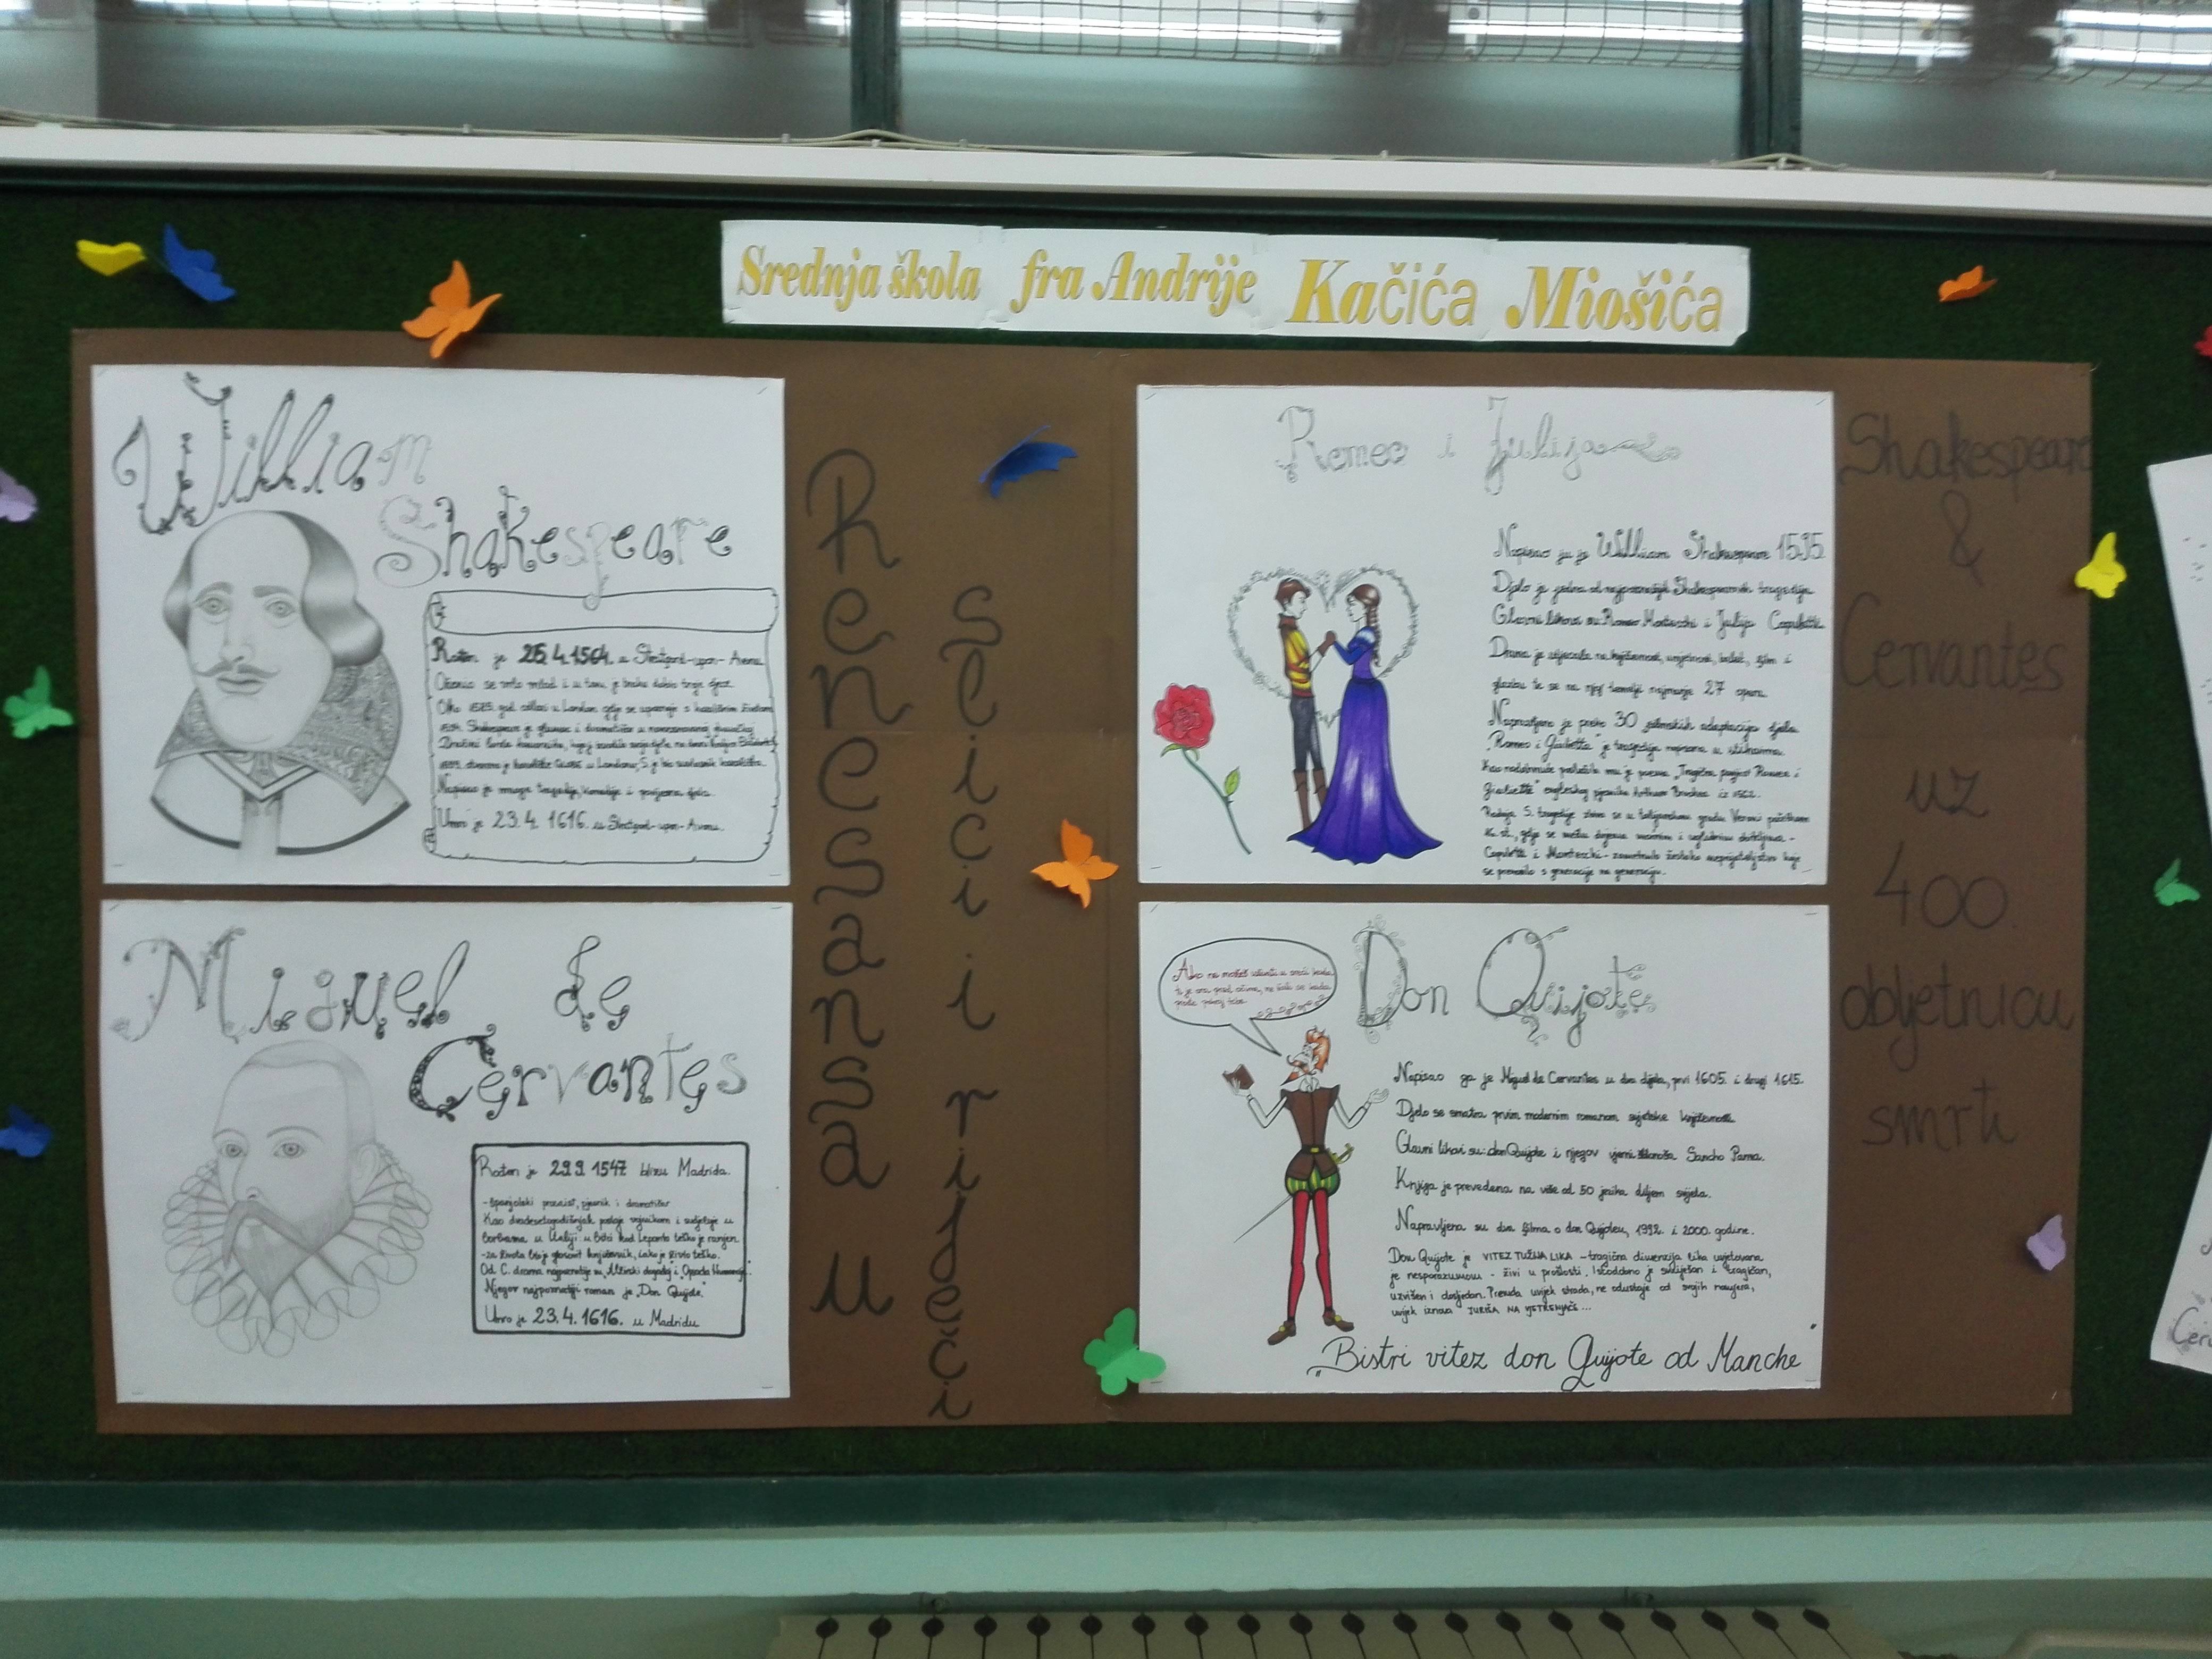 Srednja škola fra Andrije Kačića Miošića
William
Shakespeare
Rođen je 26.4.1564. u Stratford-upon-Avonu.
Oženio se vrlo mlad i u tom je braku dobio troje djece.
Oko 1585. god. odlazi u London gdje se upoznaje s kazališnim životom
1594. Shakespeare je glumac i dramatičar u novoosnovanoj glumačkoj
1599. otvoreno je kazalište GLOBE u Londonu; S. je bio suvlasnik kazališta.
Napisao je mnoge tragedije, komedije i povijesna djela.
Umro je 23.4.1616. u Stratford-upon-Avonu.
Miguel de
Cervantes
Rođen je 29.9.1547 blizu Madrida.
-španjolski prozaist, pjesnik i dramatičar
Kao dvadesetogodišnjak postaje vojnikom i sudjeluje u
borbama u Italiji: u bitci kod Lepanta teško je ranjen.
-za života bio je glasovit književnik, iako je živio teško.
Od C. drama najpoznatije su „Alžirski događaji" i
Njegov najpoznatiji roman je „Don Quijote".
Umro je 23.4.1616. u Madridu
Renesansa u
seici i riječi
Romeo i Julija
Napisao ju je William Shakespeare 1595.
Djelo je jedna od najpoznatijih Shakespeareovih tragedija
Glavni likovi su: Romeo Montecchi i Julija Capuletti
Drama je utjecala na književnost, umjetnost, balet, film i
glazbu te se na njoj temelji najmanje 27 opera.
Napravljeno je preko 30 filmskih adaptacija djela.
„Romeo i Giulietta" je tragedija napisana u stihovima.
Kao nadahnuće poslužila mu je poema „Tragična povijest Romea i
Giuliette" engleskog pjesnika Arthura Brookea iz 1562.
Radnja S. tragedije zbiva se u talijanskom gradu Veroni početkom
Capuletti i Montecchi - zametnulo žestoko neprijateljstvo koje
se prenosilo s generacije na generaciju.
Don Quijote
Ako ne možeš uživati u sreći kada
ti je ona pred očima, ne žali se kada
prođe pokraj tebe.
Napisao ga je Miguel de Cervantes u dva djela, prvi 1605. i drugi 1615.
Djelo se smatra prvim modernim romanom svjetske književnosti.
Glavni likovi su: don Quijote i njegov vjerni štitonoša Sancho Panza.
Knjiga je prevedena na više od 50 jezika diljem svijeta.
Napravljena su dva filma o don Quijoteu, 1992. i 2000. godine.
Don Quijote je VITEZ TUŽNA LIKA - tragična dimenzija lika uvjetovana
je nesporazumom - živi u prošlosti. Istodobno je smiješan i tragičan,
uzvišen i dosljedan. Premda uvijek strada, ne odustaje od svojih namjera,
uvijek iznova JURIŠA NA VJETRENJAČE...
„Bistri vitez don Quijote od Manche
Shakespeare
&
Cervantes
uz
400.
obljetnicu
smrti